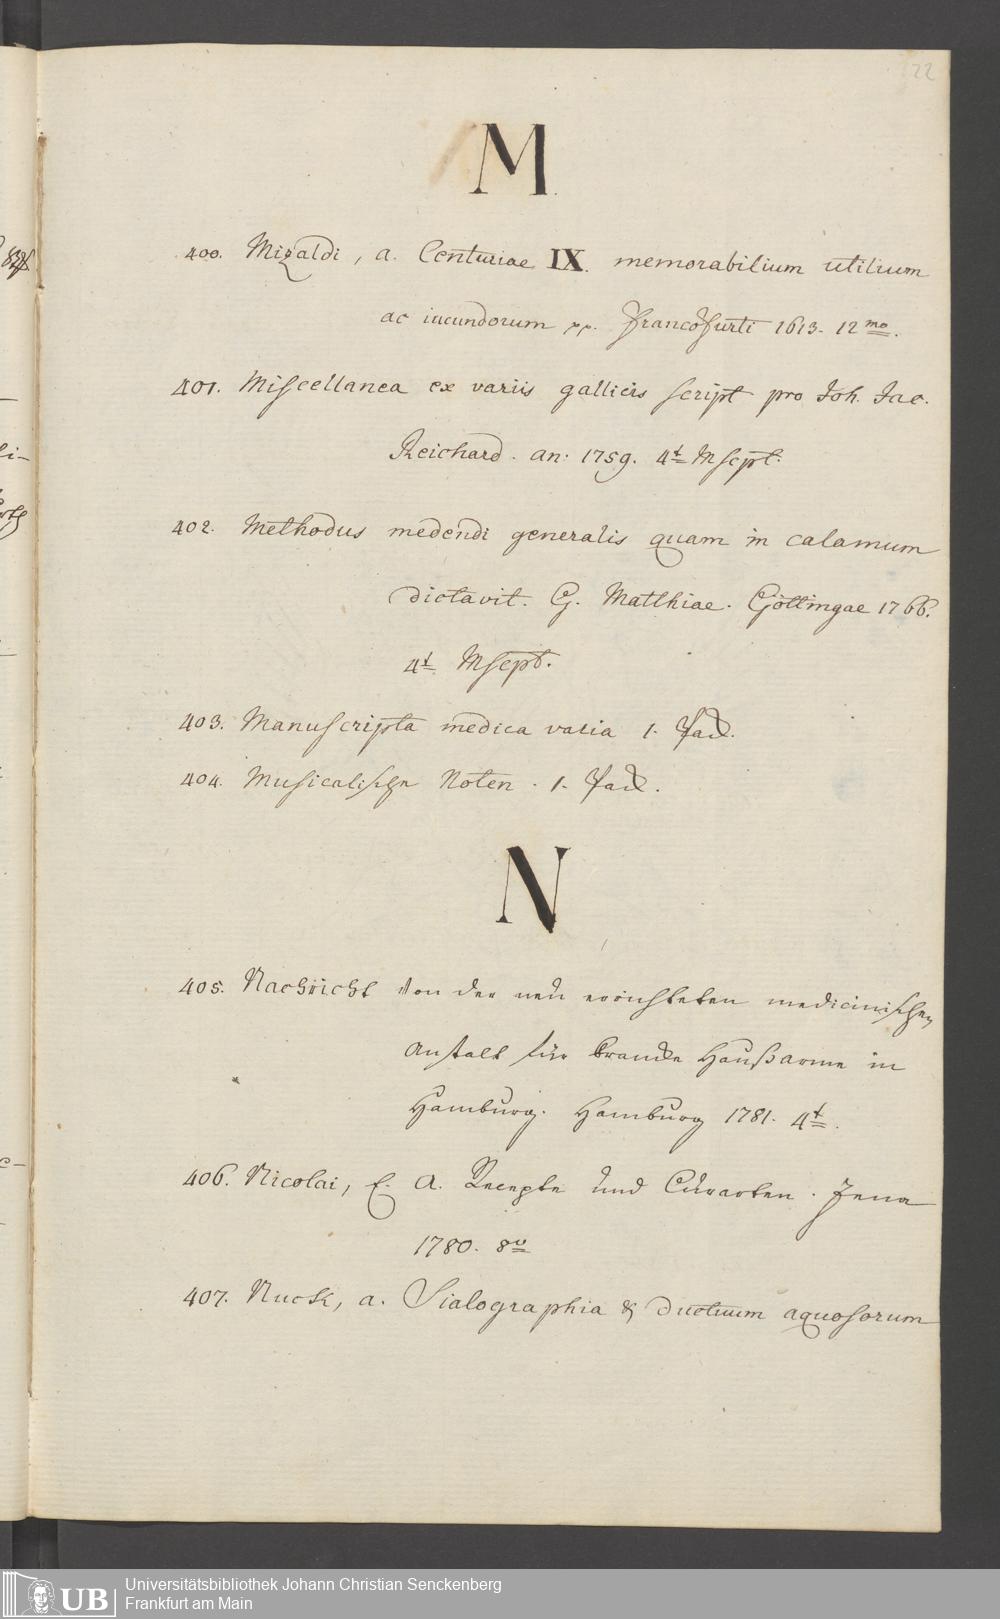 22
M
400. Mizaldi, a. Centuriae IX. memorabilium utilium
ac iucundorum pp. Francofurti 1613. 12mo.
401. Miscellanea ex variis galliers script pro Joh. Jac.
Reichard. an. 1759. 4t Mscpt.
402. Methodus medendi generalis quam in calamum
dictavit. G. Matthiae. Göttingae 1766.
4t Mscpt.
403. Manuscripta medica varia 1. Pack.
404. Musicalische Noten. 1. Pack.
N
405. Nachricht von der neu errichteten medicinischen
Anstalt für kranke Haußarme in
Hamburg. Hamburg 1781. 4t.
406. Nicolai, E. A. Recepte und Curarten. Jena
1780. 8v
407. Nuck, a. Sialographia & ductuum aquosorum
UB
Universitätsbibliothek Johann Christian Senckenberg
Frankfurt am Main